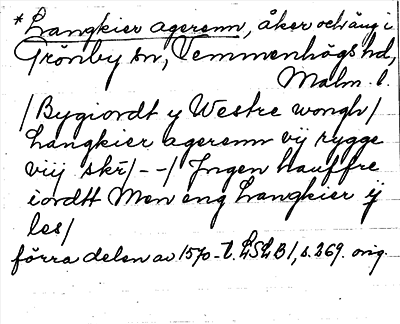 *Langkier agerenn, åker och äng i
Grönby sn, Vemmenhögs hd,
Malm. l.
/Bygiordt y Westre wongh/
Langkier agerenn vij rygge
viij skr̄/--/Jngen hauffre
iordtt Men eng Langkier ij
les/
förra delen av 1570-t. LSLB1, s. 269. orig.